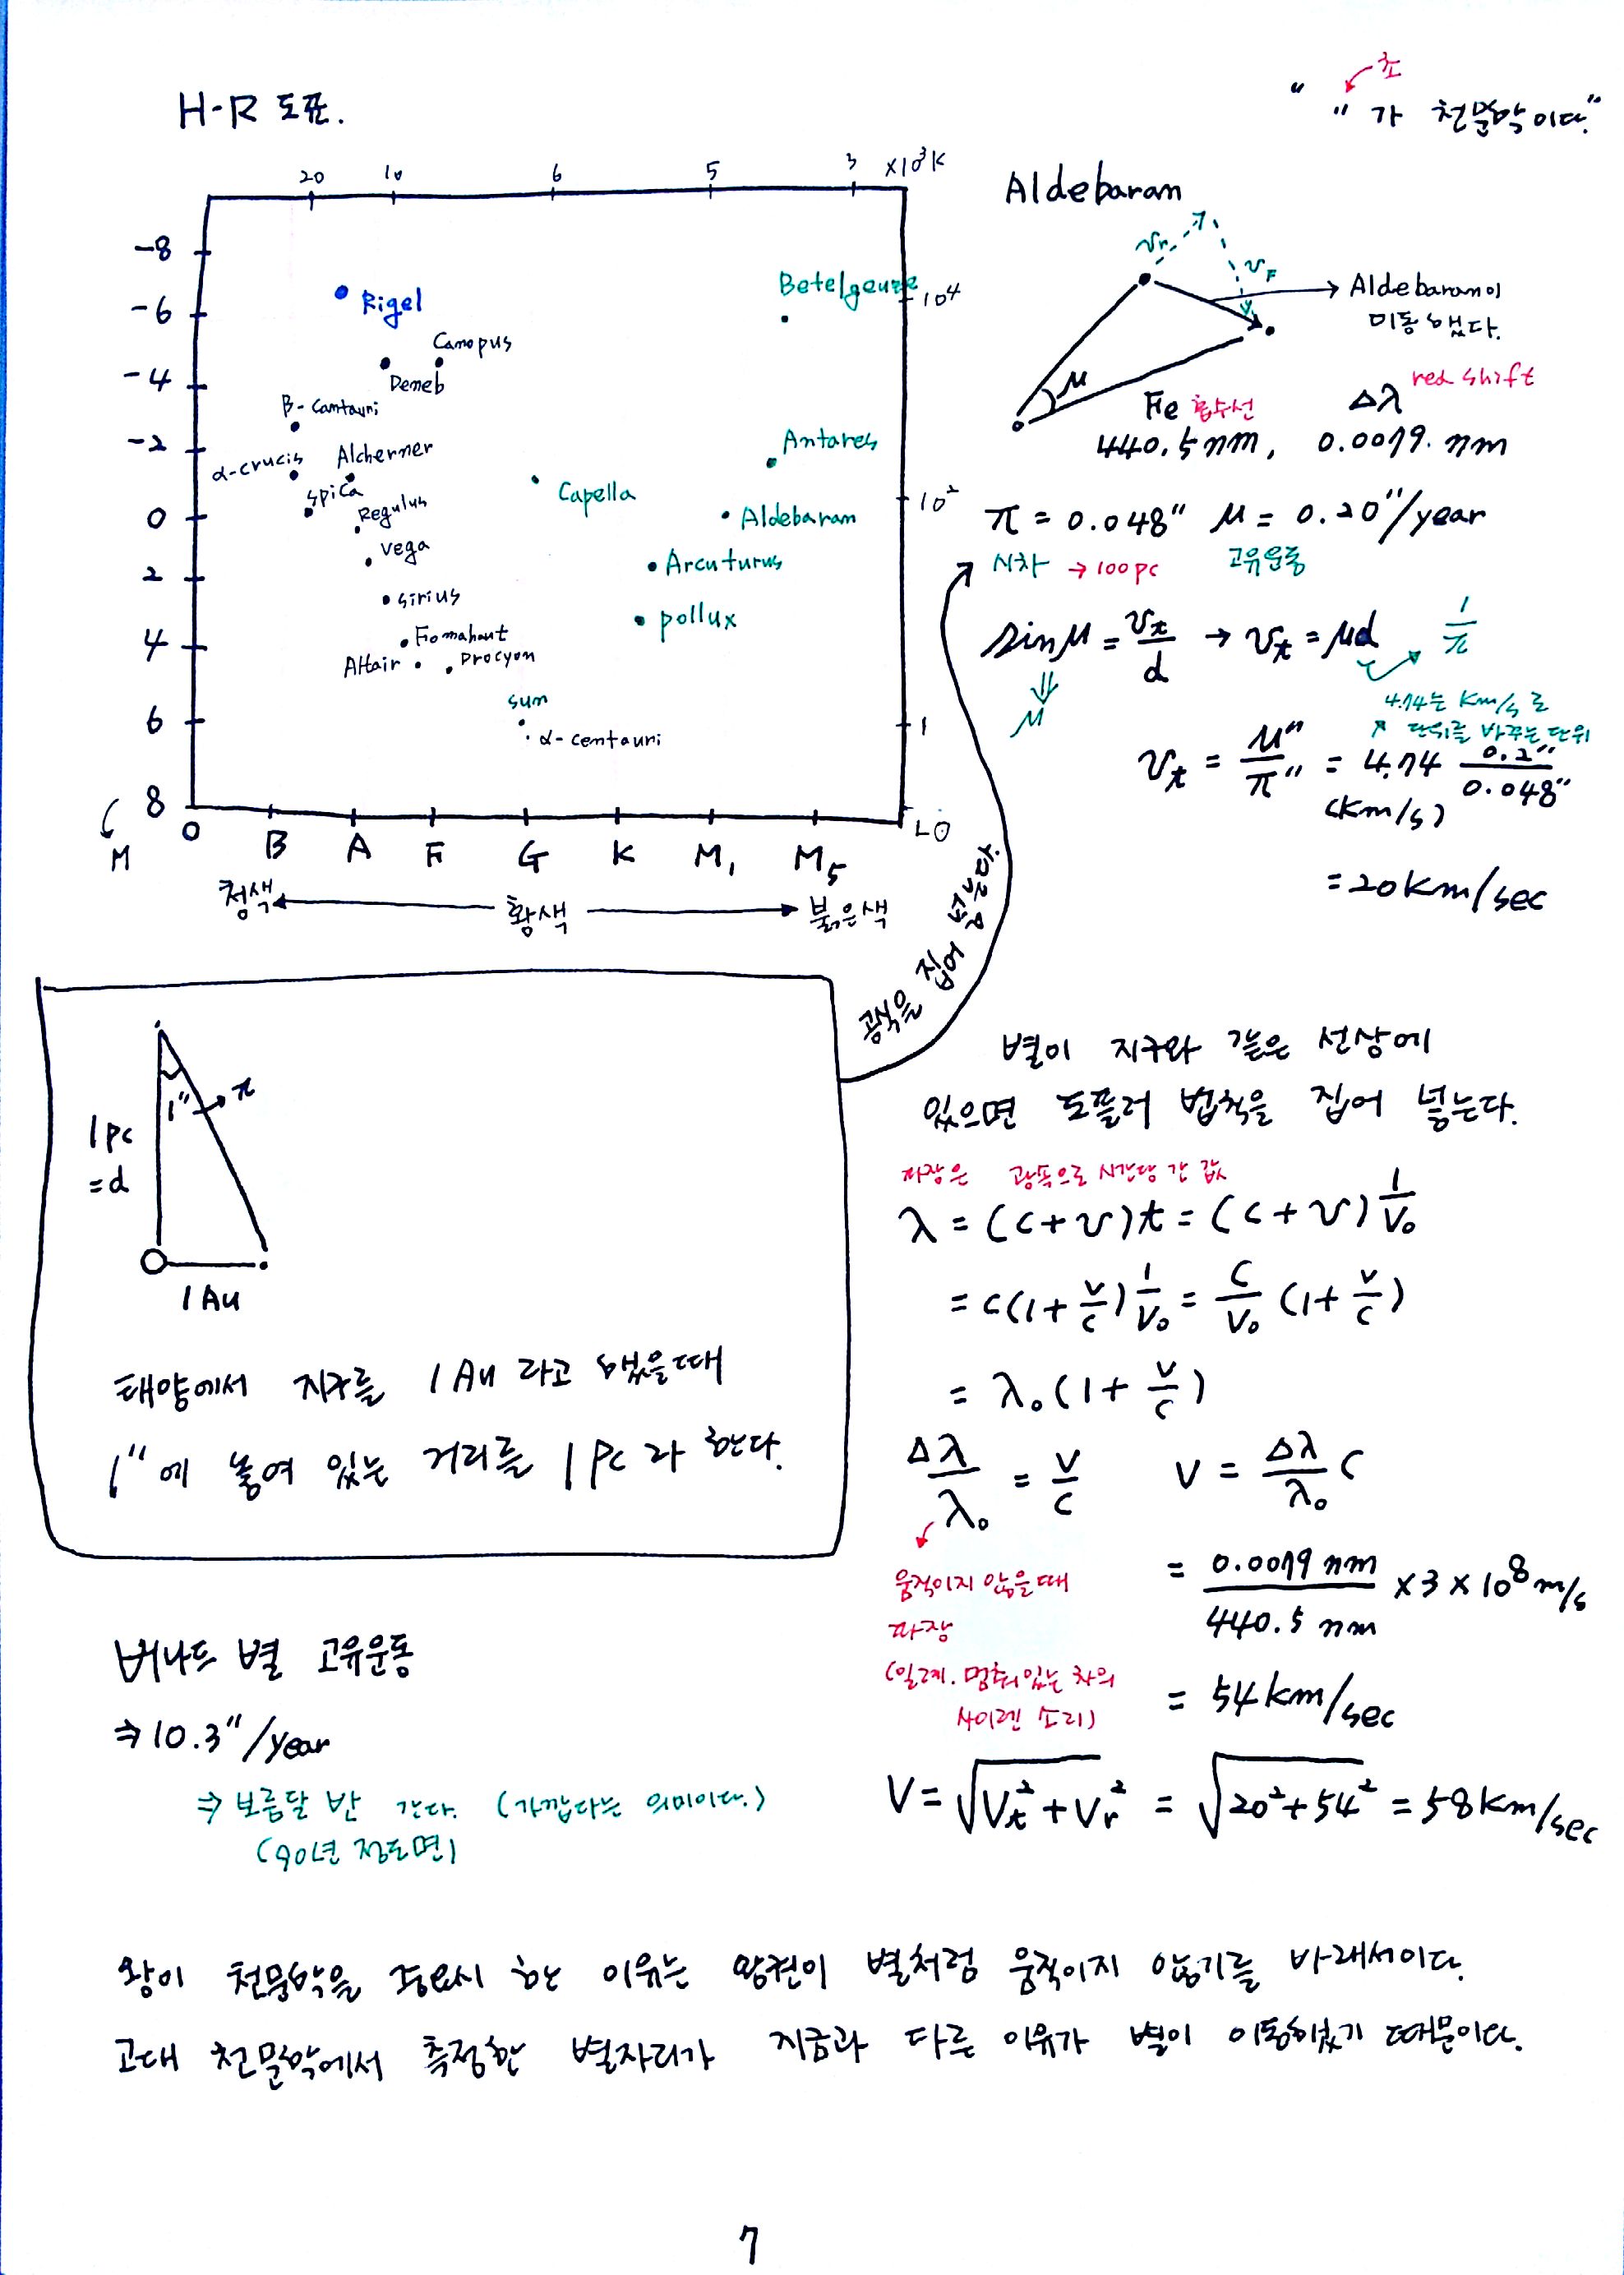 H-R 도표.
20 10 6 5 3 ×10³K
-8
-6
-4
-2
0
2
4
6
8
M
10⁴
10²
1
Rigel
Betelgeuze
Canopus
Deneb
β-Centauri
Antares
α-crucis
Alcherner
Spica
Capella
Regulus
Aldebaran
Vega
Arcuturus
Sirius
pollux
Fomahaut
Altair
Procyon
Sun
α-centauri
O B A F G K M₁ M₅
청색 황색 붉은색
1"
π
1pc
=d
1Au
태양에서 지구를 1Au 라고 했을때
1"에 놓여 있는 거리를 1pc 라 한다.
공식을 집어 넣은것.
버나드 별 고유운동
⇒10.3"/year
⇒ 보름달 반 간다. (가깝다는 의미이다.)
(90년 정도면)
초
" "가 천문학이다."
Aldebaran
νr
νF
Aldebaran이
이동했다.
μ
Fe 흡수선 Δλ red shift
440.5nm, 0.0079. nm
π = 0.048" μ = 0.20"/year
시차 → 100pc 고유운동
sinμ = νt/d → νt = μd 1/π
⇓
μ
4.74는 km/s 로
단위를 바꾸는 단위
νt = μ"/π" = 4.74 0.2"/0.048"
(km/s)
= 20km/sec
별이 지구와 같은 선상에
있으면 도플러 법칙을 집어 넣는다.
파장은 광속으로 시간당 간 값
λ = (c+ν)t = (c+ν) 1/V₀
= c(1+v/c) 1/V₀ = C/V₀ (1+v/c)
= λ₀(1+v/c)
Δλ/λ₀ = v/c V = Δλ/λ₀ C
움직이지 않을때
파장
(일례. 멈춰있는 차의
사이렌 소리)
= 0.0079 nm/440.5 nm ×3×10⁸m/s
= 54km/sec
V = √Vt²+Vr² = √20²+54² = 58km/sec
왕이 천문학을 중요시 한 이유는 왕권이 별처럼 움직이지 않기를 바래서이다.
고대 천문학에서 측정한 별자리가 지금과 다른 이유가 별이 이동하였기 때문이다.
7